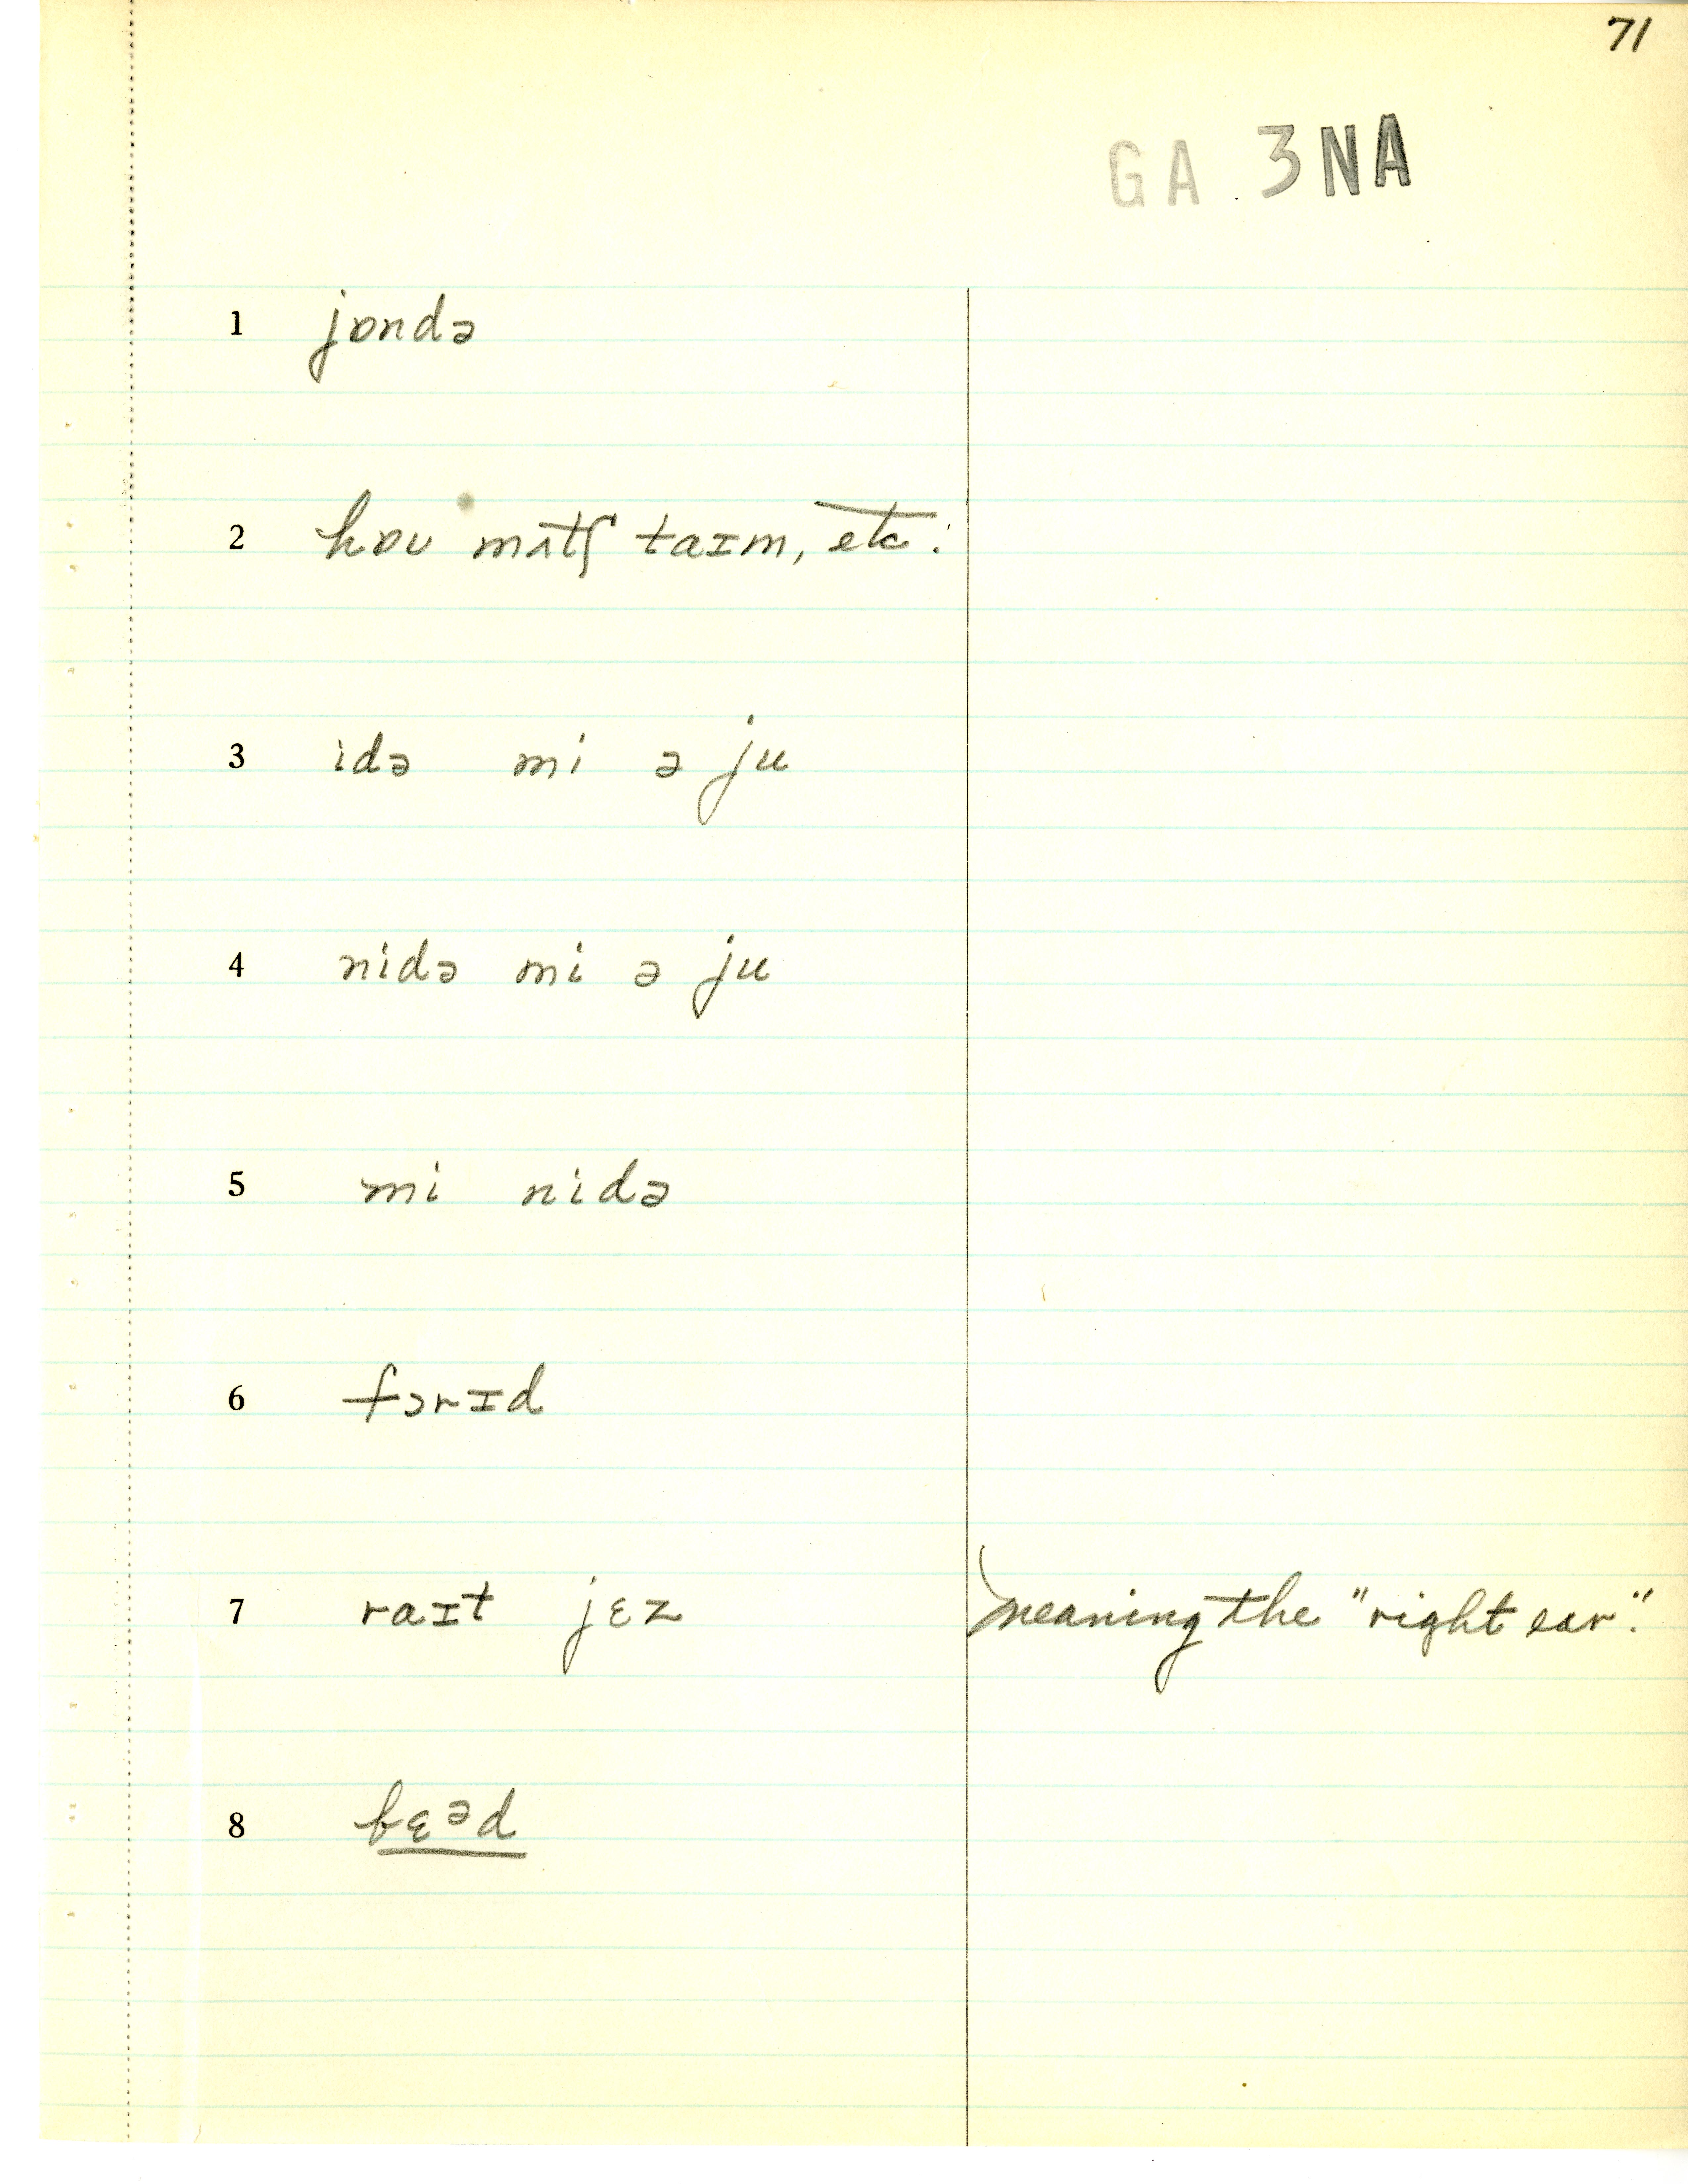 71
GA 3NA
1 jɒndə
2 hɒʊ mʌtʃ taɪm, etc.
3 idə mi ə ju
4 nidə mi ə ju
5 mi nidə
6 fɔrɪd
7 raɪt jɛz meaning the "right ear".
8 bɛᵊd